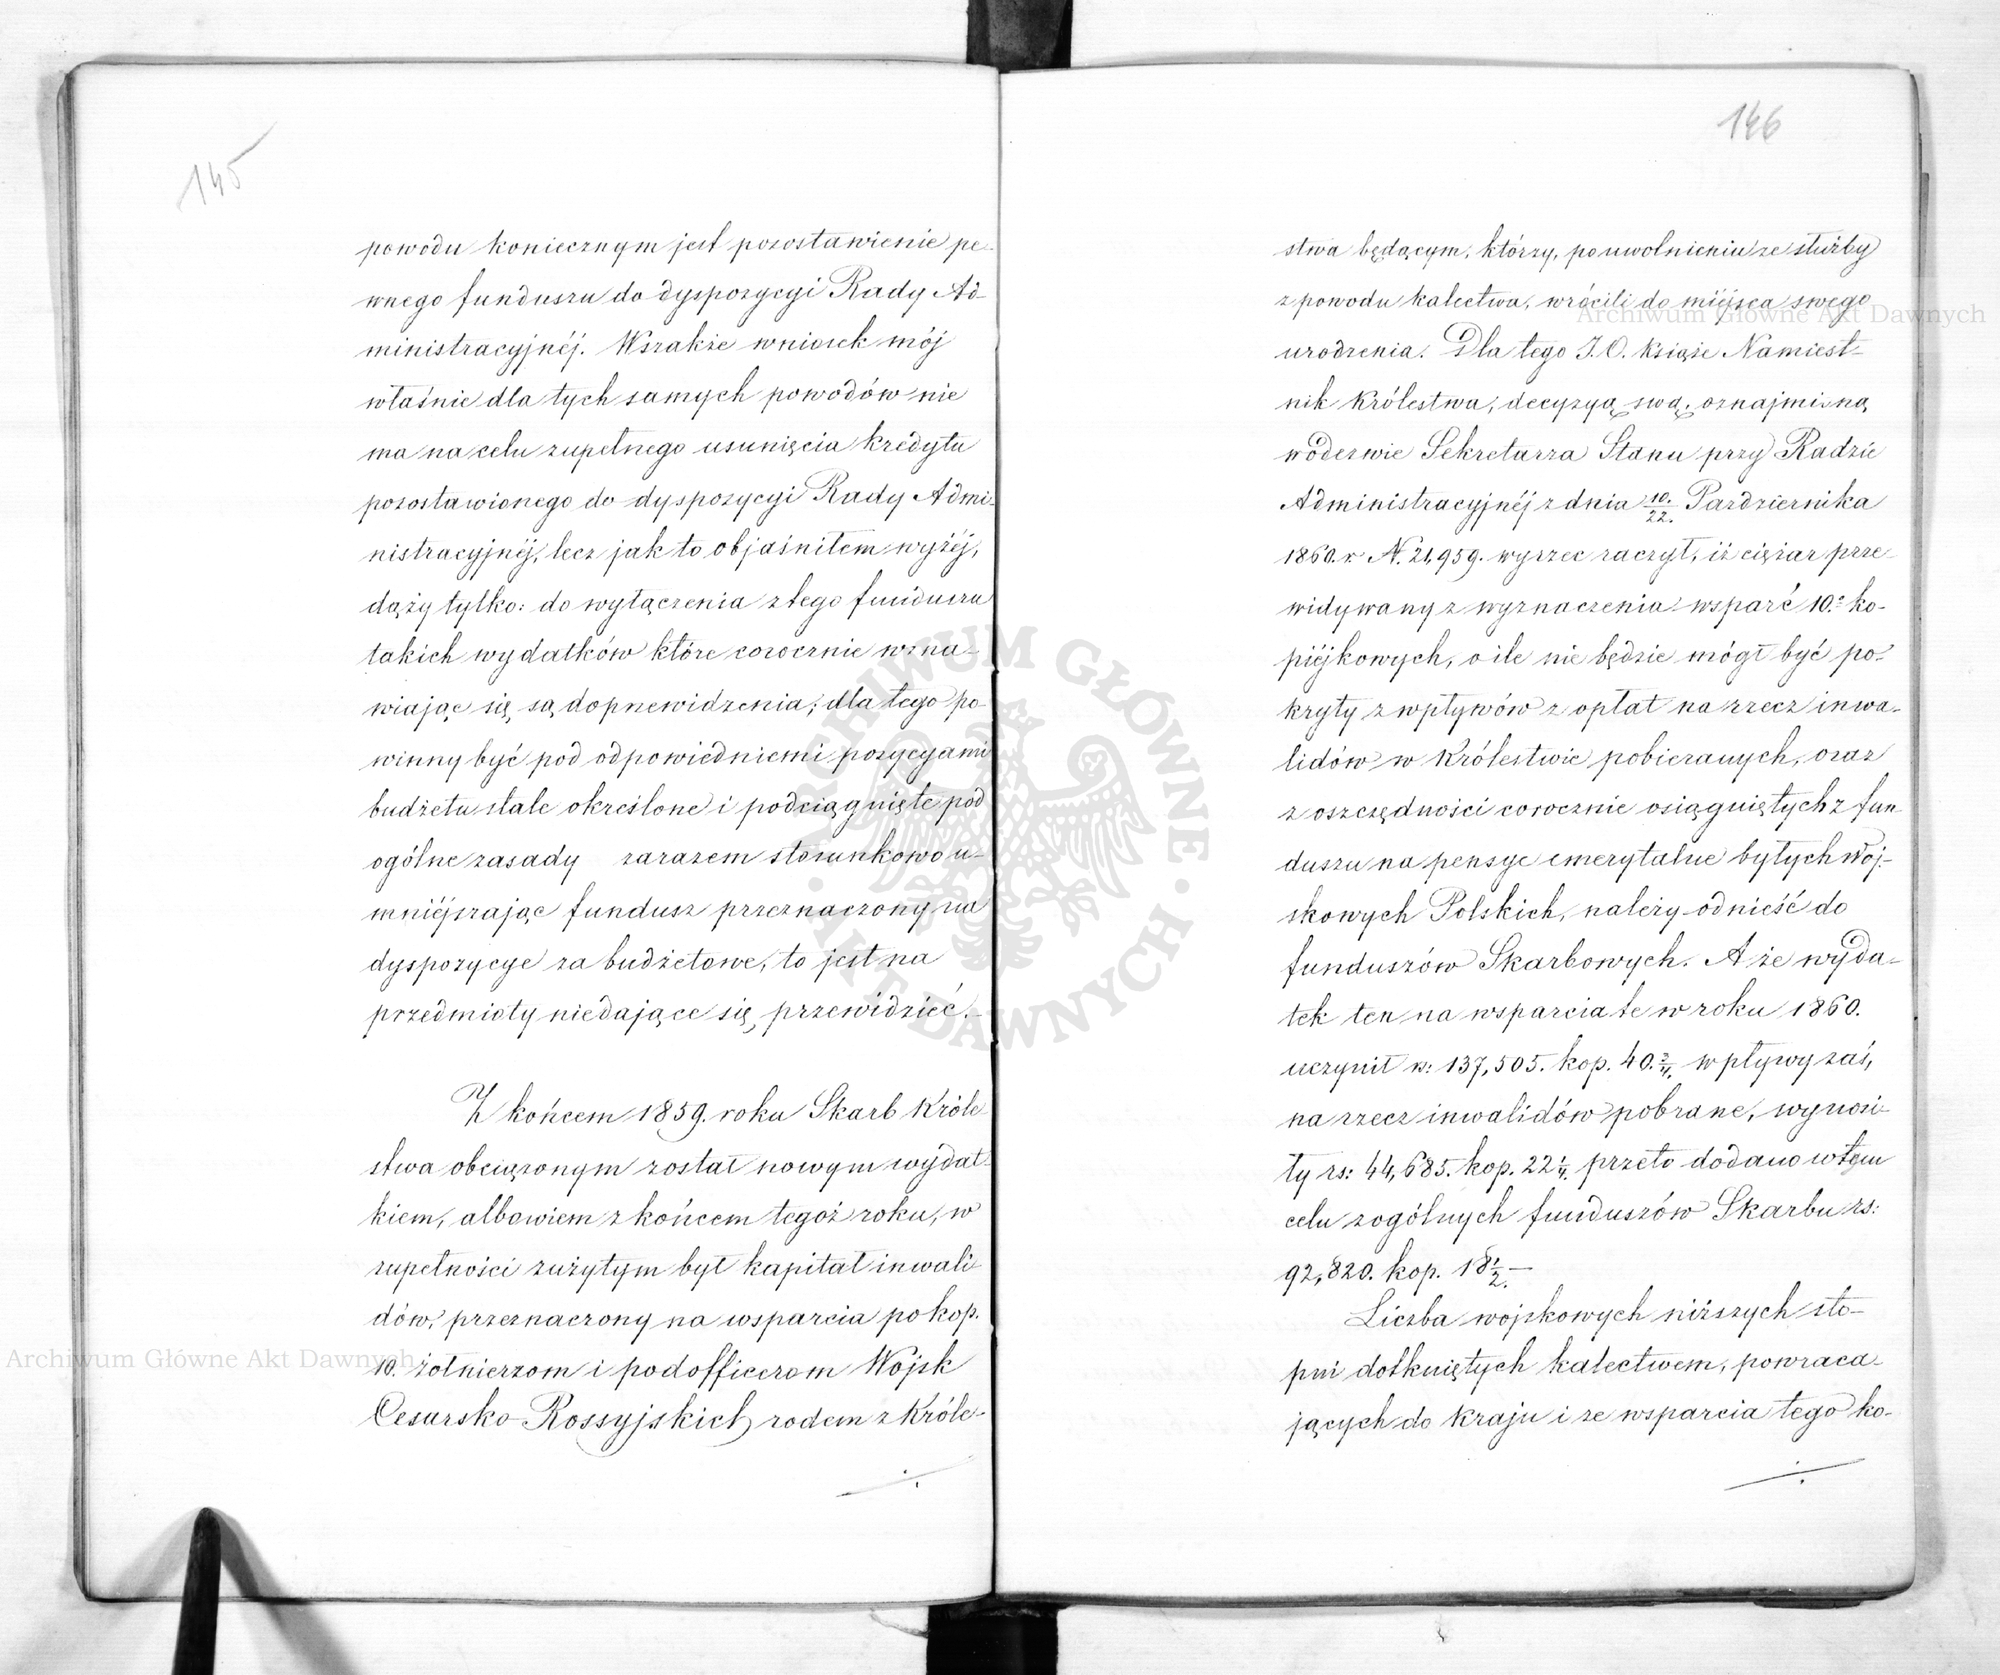 145
powodu koniecznym jest pozostawienie pe-
wnego funduszu do dyspozycyi Rady Ad-
ministracyjnéj. Wszakże wniosek mój
właśnie dla tych samych powodów nie
ma na celu zupełnego usunięcia kredytu
pozostawionego do dyspozycyi Rady Admi-
nistracyjnéj, lecz jak to objaśniłem wyżéj,
dąży tylko: do wyłączenia z tego funduszu
takich wydatków które corocznie wzna-
wiając się, są do przewidzenia; dla tego po-
winny być pod odpowiedniemi pozycyami
budżetu stale określone i podciągnięte pod
ogólne zasady zarazem stosunkowo u-
mniéjszając fundusz przeznaczony na
dyspozycye za budżetowe, to jest na
przedmioty niedające się przewidzieć.-
Z końcem 1859. roku Skarb Króle
stwa obciążonym został nowym wydat-
kiem, albowiem z końcem tegoż roku, w
zupełności zużytym był kapitał inwali
dów, przeznaczony na wsparcia po kop.
10. żołnierzom i podofficerom Wojsk
Cesarsko-Rossyjskich, rodem z Króle-
146
stwa będącym, którzy, po uwolnieniu ze służby
z powodu kalectwa, wrócili do miéjsca swego
urodzenia. Dla tego J.O. Książe Namiest-
nik Królestwa, decyzyą swą, oznajmioną
w odezwie Sekretarza Stanu przy Radzie
Administracyjnéj z dnia 10/22. Października
1860. r. N. 21,959. wyrzec raczył, iż ciężar prze-
widywany z wyznaczenia wsparć 10.o ko-
piéjkowych, o ile nie będzie mógł być po-
kryty z wpływów z opłat na rzecz inwa-
lidów w Królestwie pobieranych, oraz
z oszczędności corocznie osiągniętych z fun
duszu na pensye emerytalne byłych Woj-
skowych Polskich, należy odnieść do
funduszów Skarbowych. A że wyda-
tek ten na wsparcia te w roku 1860.
uczynił rs: 137,505. kop. 40.3/4. wpływy zaś,
na rzecz inwalidów pobrane, wynosi-
ły rs: 44,685. kop. 22 1/4. przeto dodano w tym
celu z ogólnych funduszów Skarbu rs:
92,820. kop. 18 1/2.—
Liczba wojskowych niższych sto-
pni dotkniętych kalectwem, powraca-
jących do kraju i ze wsparcia tego ko-
Archiwum Główne Akt Dawnych
Archiwum Główne Akt Dawnych
ARCHIWUM GŁÓWNE · AKT DAWNYCH ·